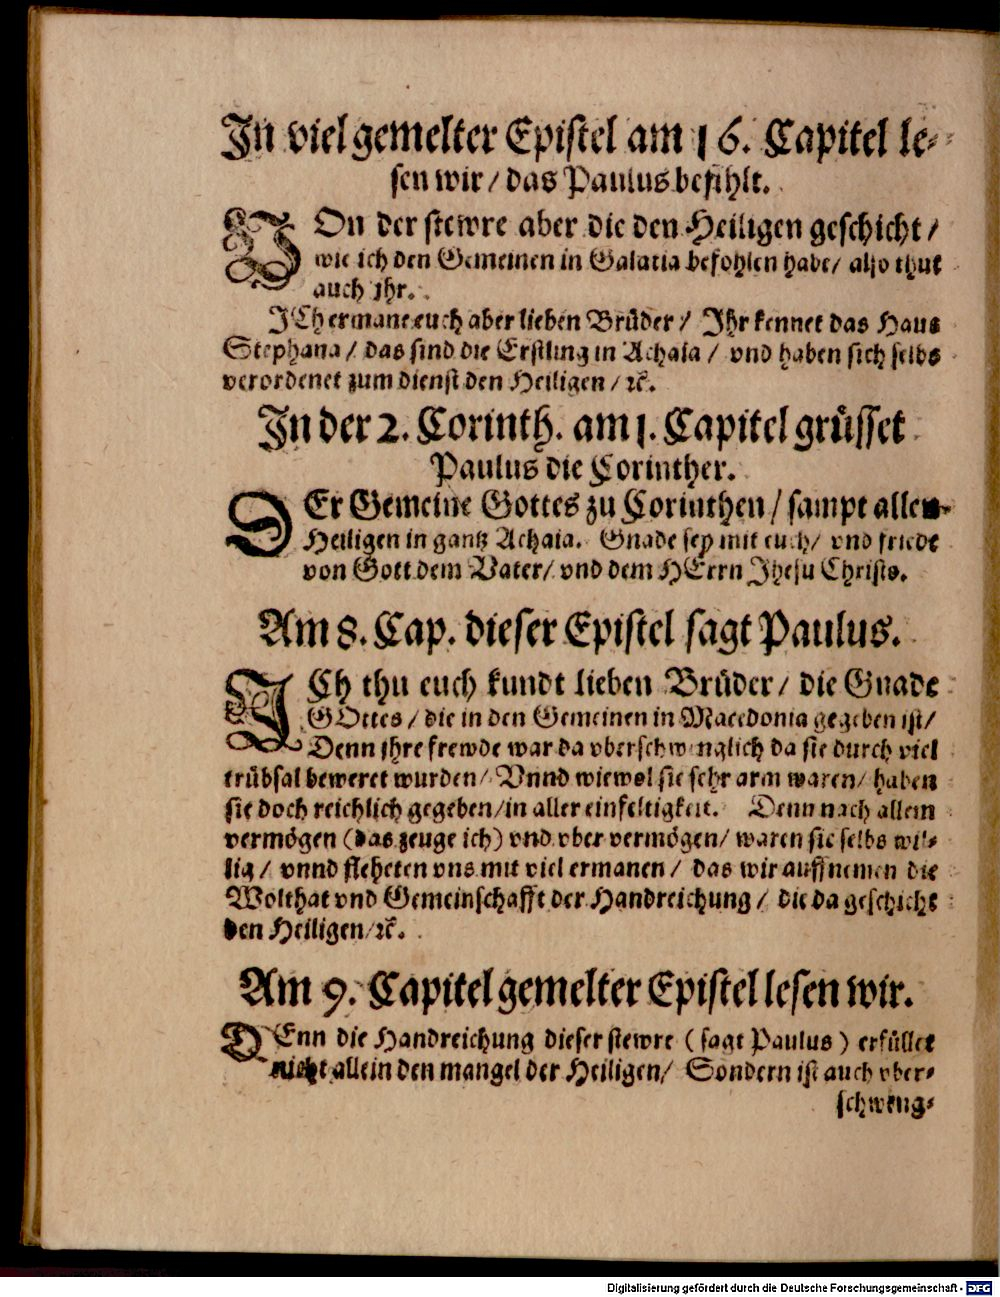 In viel gemelter Epistel am 16. Capitel le-
sen wir / das Paulus befihlt.
VOn der stewre aber die den Heiligen geschicht /
wie ich den Gemeinen in Galatia befohlen habe / also thut
auch jhr.
ICh ermane euch aber lieben Brüder / Ihr kennet das Haus
Stephana / das sind die Erstling in Achaia / vnd haben sich selbs
verordenet zum dienst den Heiligen / ꝛc.
In der 2. Corinth. am 1. Capitel grüsset
Paulus die Corinther.
DEr Gemeine Gottes zu Corinthen / sampt allen
Heiligen in gantz Achaia. Gnade sey mit euch / vnd friede
von Gott dem Vater / vnd dem HErrn Jhesu Christo.
Am 8. Cap. dieser Epistel sagt Paulus.
ICh thu euch kundt lieben Brüder / die Gnade
GOttes / die in den Gemeinen in Macedonia gegeben ist /
Denn jhre frewde war da vberschwenglich da sie durch viel
trübsal beweret wurden / Vnnd wiewol sie sehr arm waren / haben
sie doch reichlich gegeben / in aller einfeltigkeit. Denn nach allem
vermögen (das zeuge ich) vnd vber vermögen / waren sie selbs wil-
lig / vnnd fleheten vns mit viel ermanen / das wir auffnemen die
Wolthat vnd Gemeinschafft der Handreichung / die da geschicht
den Heiligen / ꝛc.
Am 9. Capitel gemelter Epistel lesen wir.
DEnn die Handreichung dieser stewre ( sagt Paulus ) erfüllet
nicht allein den mangel der Heiligen / Sondern ist auch vber-
schweng-
Digitalisierung gefördert durch die Deutsche Forschungsgemeinschaft - DFG